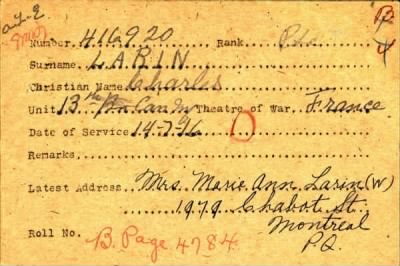 Number 416920 Rank Pte
Surname LARIN
Christian Name Charles
Unit 13th Bn Can In Theatre of War France
Date of Service 14-7-16
Remarks
Latest Address Mrs. Marie Ann Larin (W)
1979 Chabot St.
Montreal
P.Q.
Roll No. B. Page 4784